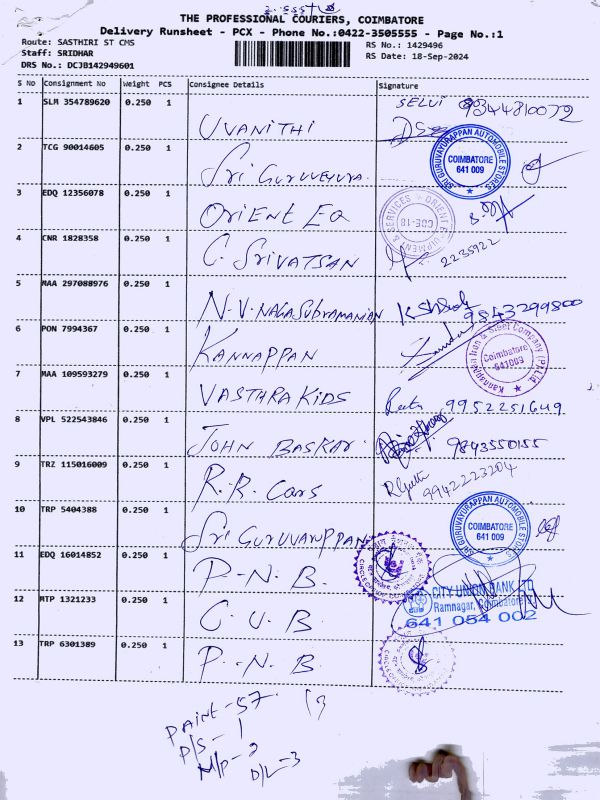 THE PROFESSIONAL COURIERS, COIMBATORE
Delivery Runsheet - PCX - Phone No.:0422-3505555 - Page No.:1
Route: SASTHIRI ST CMS
RS No.: 1429496
Staff: SRIDHAR
RS Date: 18-Sep-2024
DRS No.: DCJB142949601
S No Consignment No Weight PCS Consignee Details Signature
1 SLM 354789620 0.250 1 UVANITHI SELVI 9344810072
2 TCG 90014605 0.250 1 Sri Guruveyura.
SRI GURUVAYURAPPAN AUTOMOBILE STORES
COIMBATORE
641 009
3 EDQ 12356078 0.250 1 ORIENT EQ
ORIENT EQUIPMENT & SERVICES
CBE-18
4 CNR 1828358 0.250 1 C. SRIVATSAN 2235922
5 MAA 297088976 0.250 1 N.V.NAGASUBRAMANIAN 9843299800
6 PON 7994367 0.250 1 KANNAPPAN
Kannappan Iron & Steel Company (P) Ltd.
Coimbatore
641009
7 MAA 109593279 0.250 1 VASTHRA KIDS 9952251649
8 VPL 522543846 0.250 1 JOHN BASKAR 9843550155
9 TRZ 115016009 0.250 1 R.R. Cars 9942223204
10 TRP 5404388 0.250 1 Sri GURUVARUPPAN
SRI GURUVAYURAPPAN AUTOMOBILE STORES
COIMBATORE
641 009
11 EDQ 16014852 0.250 1 P.N.B.
12 MTP 1321233 0.250 1 C U B
CITY UNION BANK LTD
Ramnagar, Coimbatore
641 054 002
13 TRP 6301389 0.250 1 P.N.B
PAINT-57
P/S-1
M/P-2
D/L-3